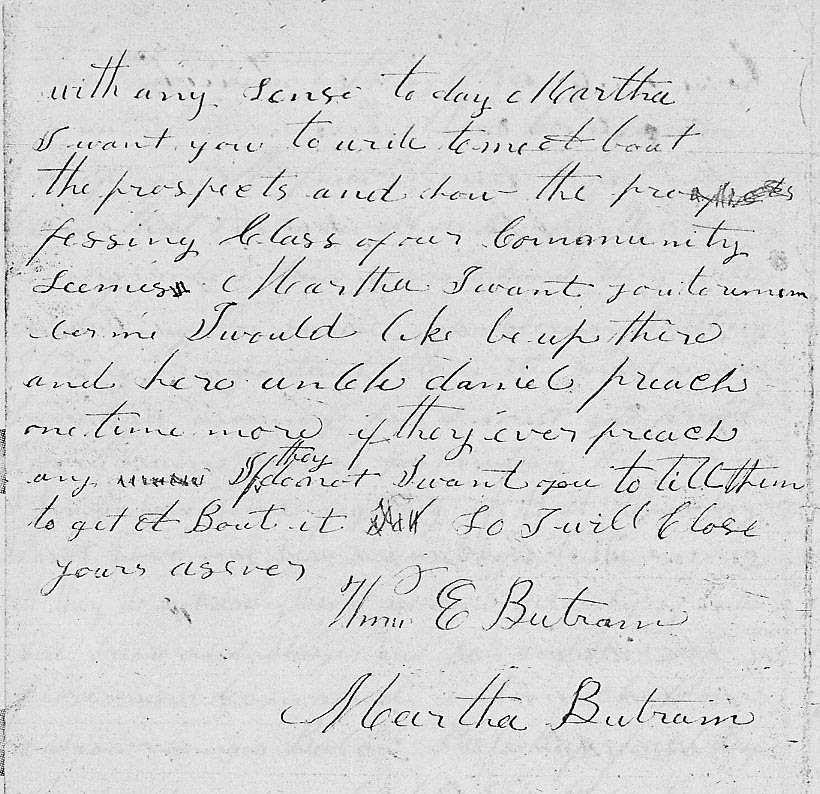 with any Sense to day Martha
I want you to write to me et bout
the prospects and how the pro
fessing Class of our Community
Seemes Martha I want you to remem
ber me I would like be up there
and here unkle daniel preach
one time more if they ever preach
any If they do not I want you to till them
to get et Bout it So I will Close
yours as ever
Wm E Butram
Martha Butram